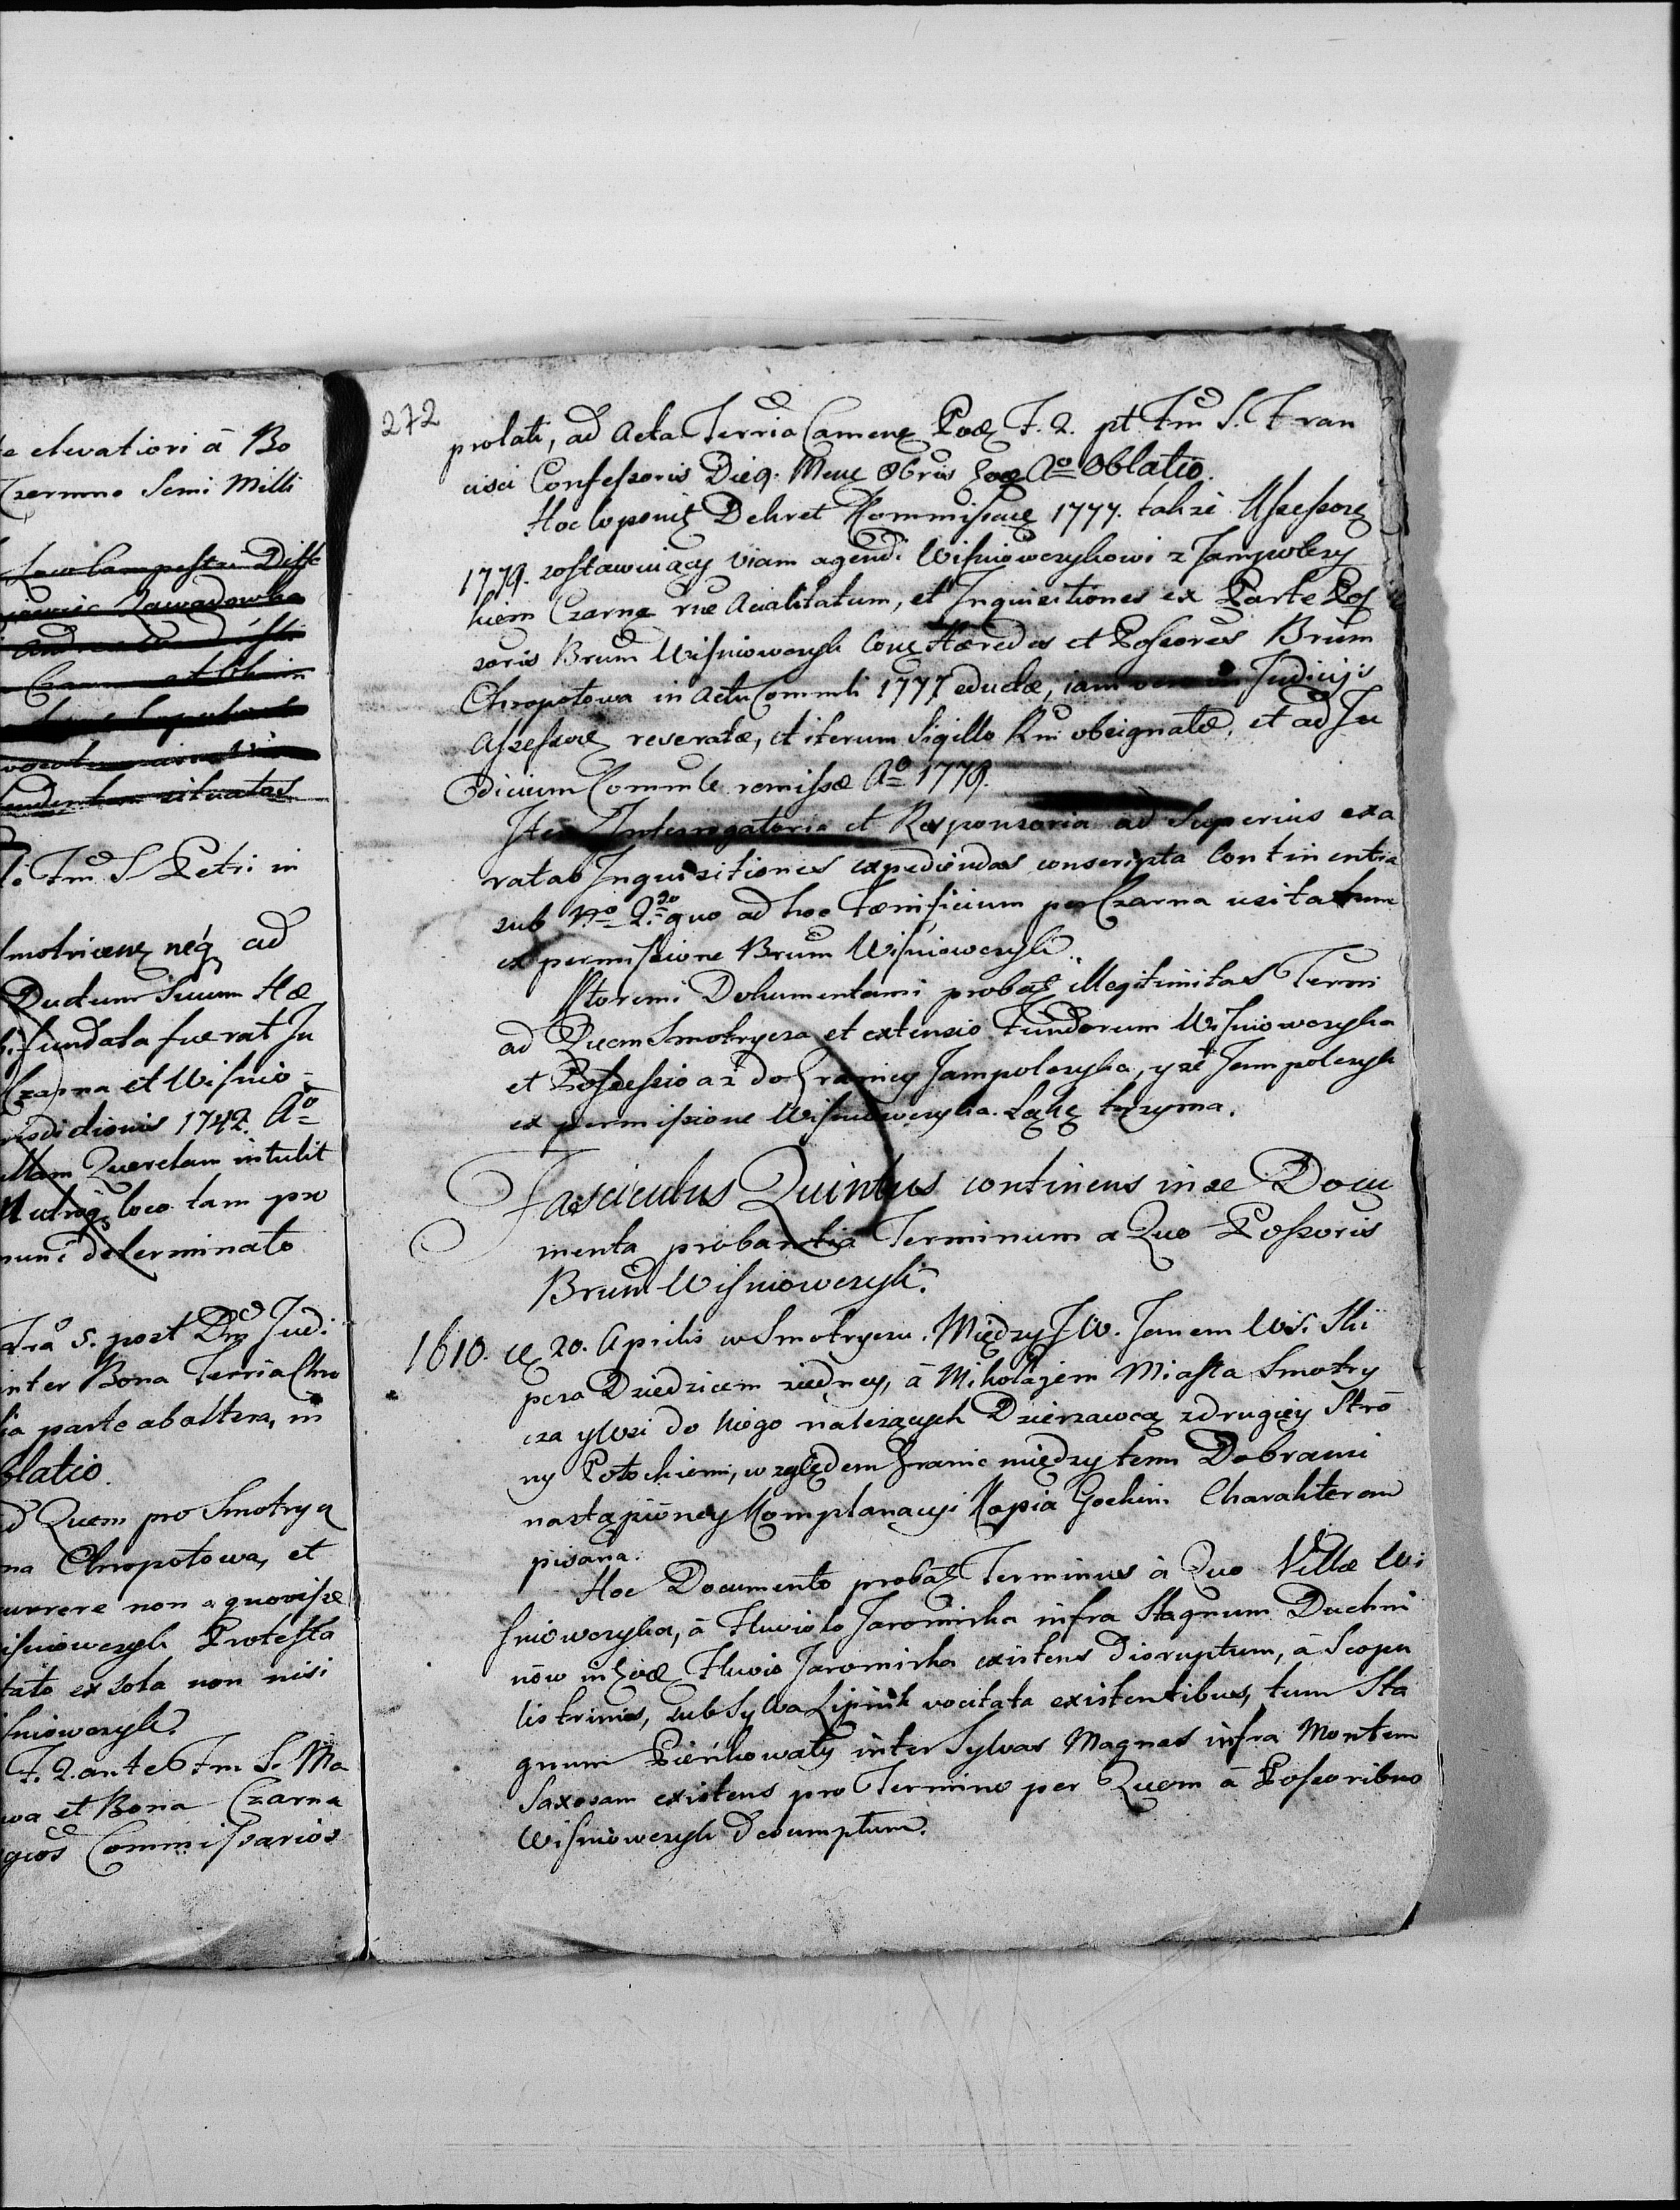 te elevatiori ā Bo
Czermno Semi Milli
Loco Campestri Dist
Zawadowka
situatas
Fm̃ S Petri in
Smotricens neq ad
Ductum Suum Hæ
fundata fuerat Ju
Czarna et Wisnio-
risdictionis 1742. Aº
ullam Querelam intulit
Utroq loco tam pro
nunc determinato
Fra 5. post Judi
inter Bona Terria Chro
ia parte ab altera, in
blatio.
d Quem pro Smotrycz
na Chropotowa, et
urrere non a quovise
isniowczyk Protesta
tato ex sola non nisi
sniowczyk.
F. 2. ante Fm S. Ma
wa et Bona Czarna
Commissarios
272
prolati, ad Acta Terria Camene Pod F. 2. pt. Fm̃ S. Fran
cisci Confessoris Die 9. Mens 8bris Aº Oblatio.
Hoc Dekret Kommissar 1777. takze Assessors
1779. zostawuiący viam agendi Wisniowczykowi z Jampolczy
kiem Czarne rne Acialitatum, et Inquisitiones ex Parte Pos
soris Brum Wisniowczyk Hæredes et Possores Brum
Chropotowa in Actu Commli 1777 eductæ, iam vero in Judicijs
Assessor reseratæ, et iterum Sigillo Rni obsignatæ, et ad Ju
dicium Commle remissæ Aº 1779.
Item Interrogatoria et Responsoria ad Superius exa
ratas Inquisitiones expediendas conscripta Continentia
sub Nº 2do quo ad hoc Fænificium per Czarna usitatum
ex permissione Brum Wisniowczyk.
Ktoremi Dokumentami probat Illegitimitas Termi
ad Quem Smotrycza et extensio Fundorum Wisniowczyka
et Possessio az do Granicy Jampolczyka, y że Jampolczyk
ex permissione Wisniowczyka Łąkę trzyma.
Fasciculus Quintus continens in se Docu
menta probantia Terminum a Quo Possoris
Brum Wisniowczyk.
1610. 20. Aprilis w Smotryczu. Między J W. Janem Wis. Ski
pcza Dziedzicem ziedney, ā Mikołajem Miasta Smotry
cza y Wsi do Niego należących Dzierzawcą zdrugiey Stro
ny Potockiemi, względem Granic między temi Dobrami
nastąpioney Komplanacyi Kopia Gockim Charakterem
pisana.
Hoc Documento probat Terminus ā Quo Villæ Wi
sniowczyka, ā Fluviolo Jaromirka infra Stagnum Duchni
nów in Fluvio Jaromirka existens Disruptum, ā Scopu
lis trinis, sub Sylva Lipnik vocitata existentibus, tum Sta
gnum Pieńkowaty inter Sylvas Magnas infra Montem
Saxosam existens pro Termino per Quem ā Possoribus
Wisniowczyk desumptum.